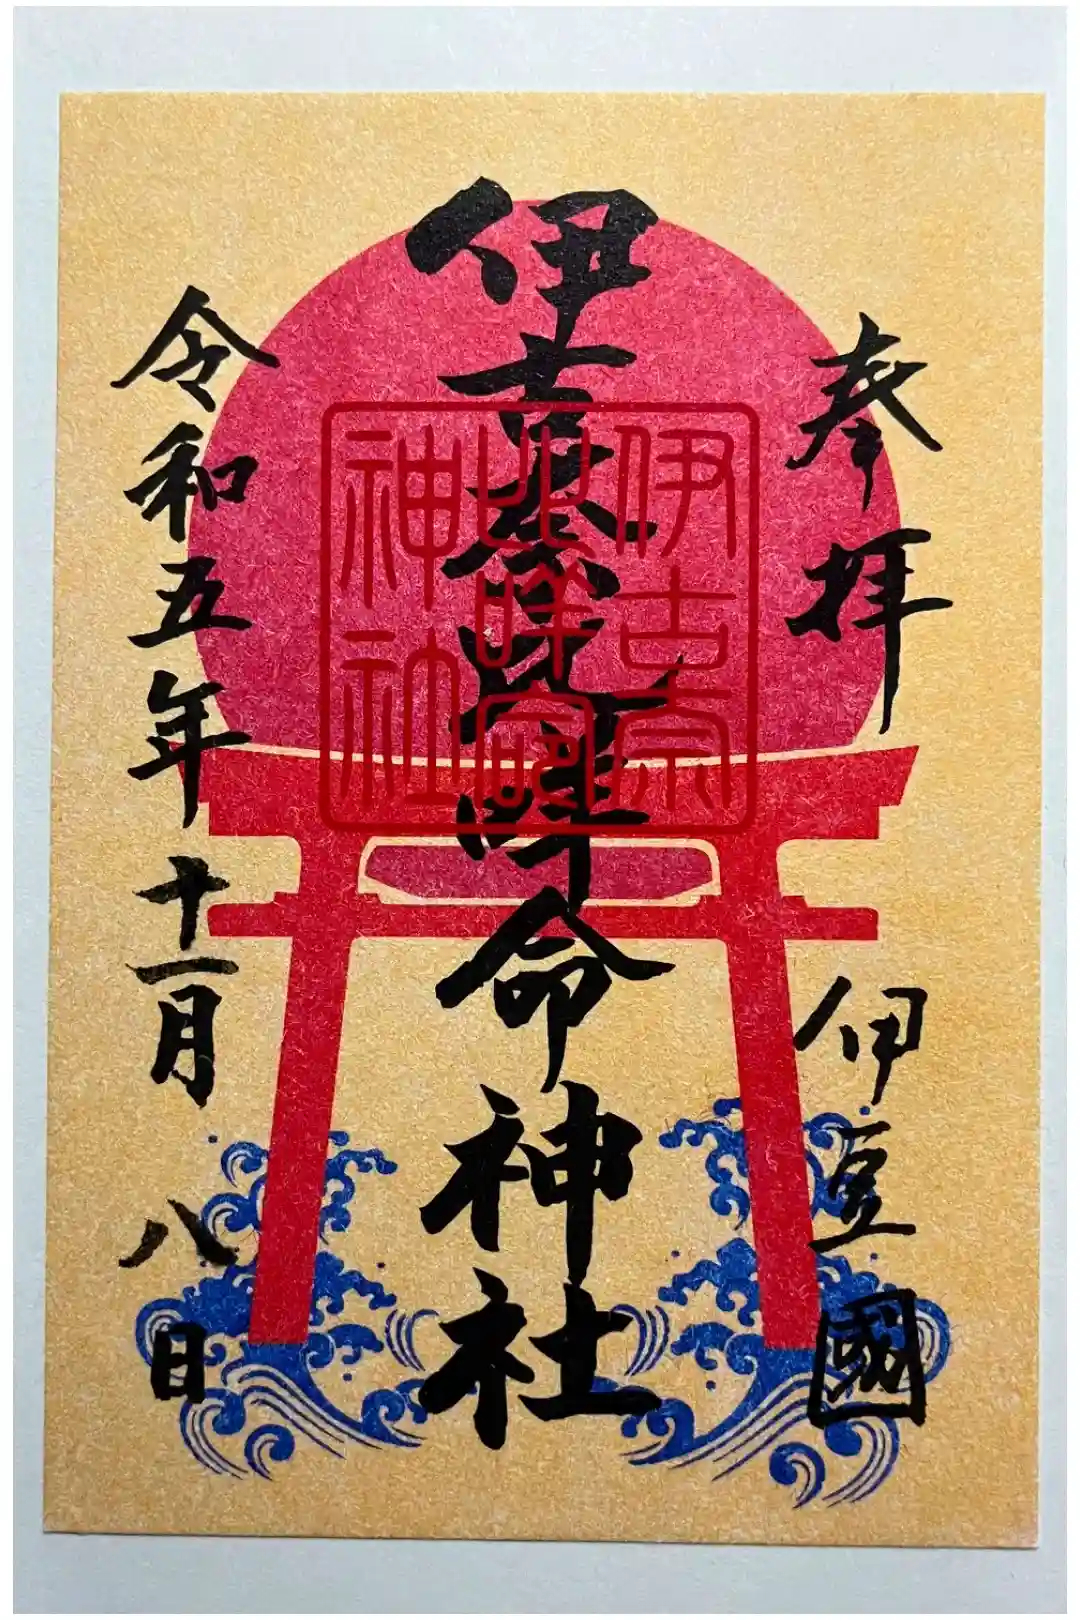 奉拝
伊豆國
伊古奈比咩命神社
伊古奈
比咩命
神社
令和五年十一月八日